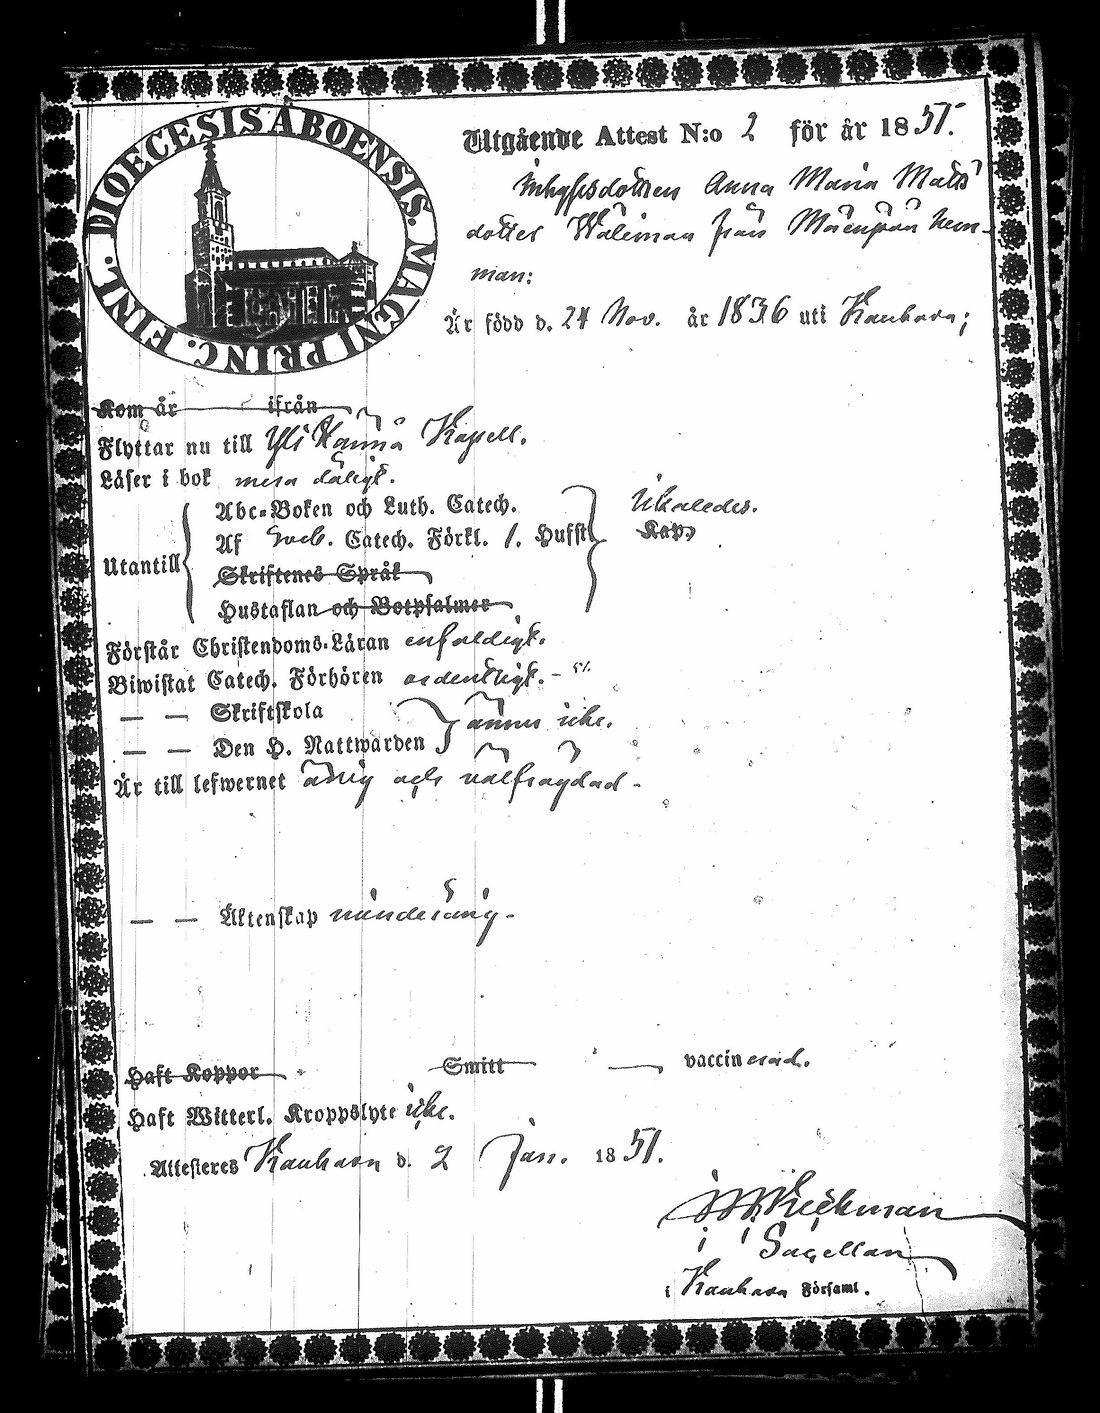 DIOECESIS ÅBOENSIS. MAGNI PRINC. FINL.
Utgående Attest N:o 2 för år 1851.
Inhysesdottren Anna Maria Matts
dotter från hem-
man:
Är född d. 24 Nov. år 1836 uti Kauhava;
Kom år ifrån
Flyttar nu till Yli Härmä Kapell.
Läser i bok mera dåligt.
Abc-Boken och Luth. Catech.
Af Sveb. Catech. Förkl. 1. Hufst
Utantill
Skriftenes Språk
Hustaflan och Botpsalmer
Likaledes.
Kap.
Förstår Christendoms-Läran enfaldigt.
Biwistat Catech. Förhören ordentligt.
— — Skriftskola
— — Den H. Nattwarden
ännu icke.
Är till lefwernet ärlig och välfrägdad.
— — Äktenskap minderårig.
Haft Koppor Smitt vaccinerad.
Haft Witterl. Kroppslyte icke.
Attesteres Kauhava d. 2 Jan. 1851.
Sacellan
i Kauhava Församl.